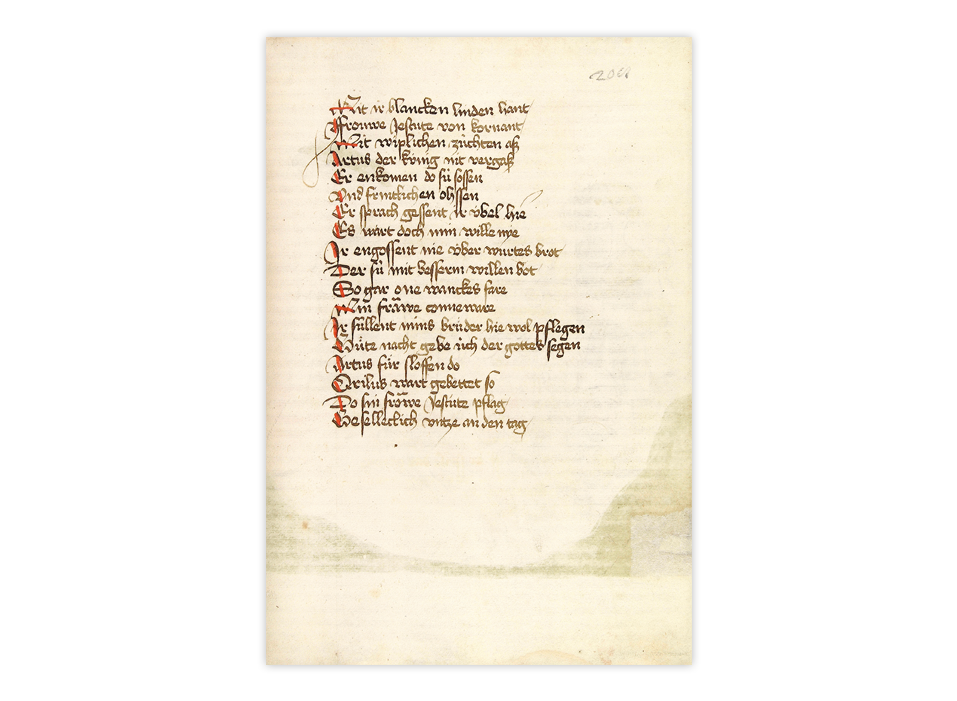 204
Mit ir blancken linden hant
Frouwe Jescute von kornant
Mit wiplichen züchten aß
Artus der kúnig nit vergaß
Er enkomen do sú sossen
Und frúntlichen ohssen
Er sprach gessent ir vbel hie
Es wart doch min wille nye
Ir engossent nie vber wurtes brot
Der sú mit besserm willen bot
So gar one wanckes fare
Min fröwe conneware
Ir súllent mins brúder hie wol pflegen
Gúte nacht gebe úch der gottes segen
Artus fúr sloffen do
Orilus wart gebettet so
Do sin fröwe Jescute pflag
Geselleclich vntze an den tag